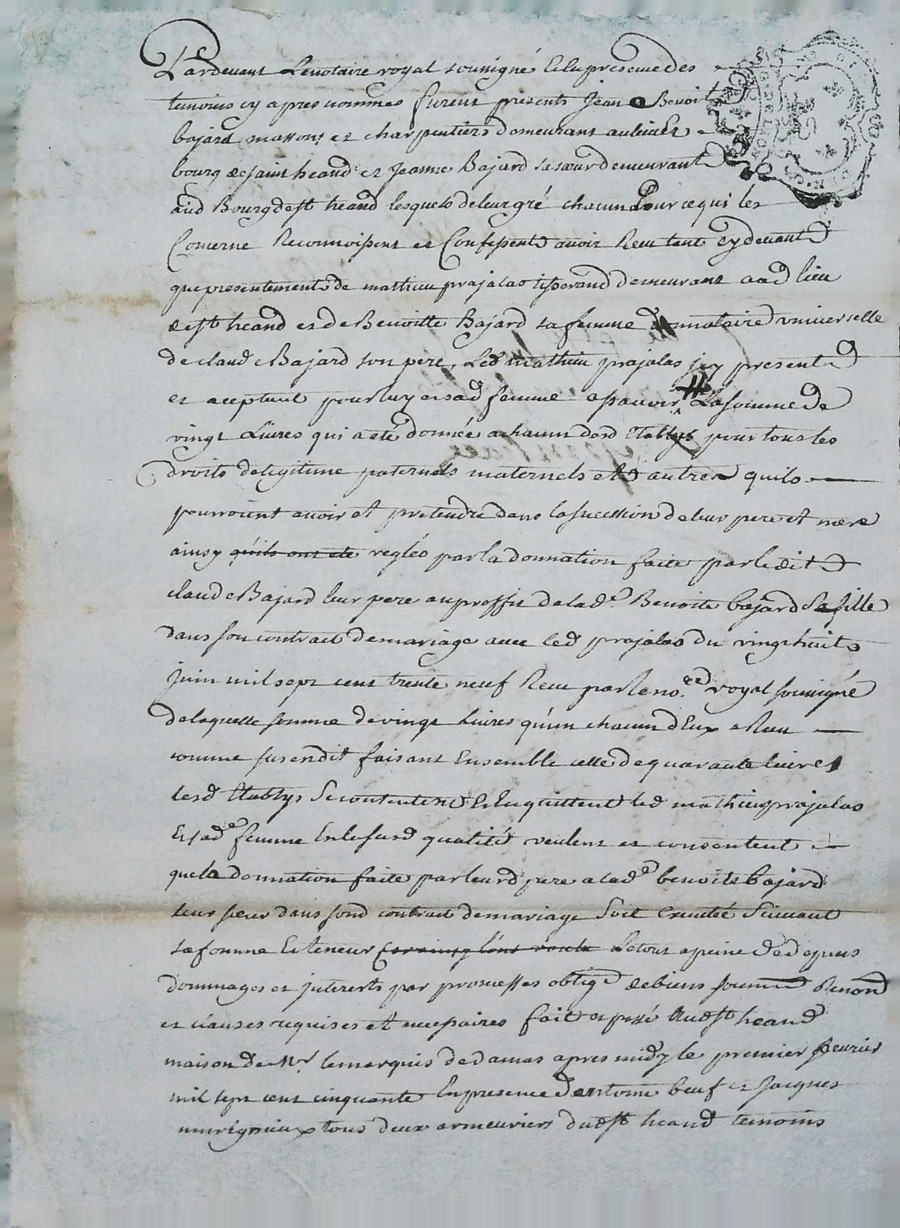 Pardevant Lenotaire royal sousigné Et En presence des
temoins cy apres nommes furent presents Jean Benoit
bajard massons et charpentiers demeurant au lieu et
bourg de saint heand et Jeanne Bajard sa sœur demeurant
aud Bourg de st heand lesquels de leur gré chacun Pour ce qui les
Concerne Reconnoissent et Confessent avoir Receu tant cy devant
que presentements de mathieu prajalas tisserand demeurant aud lieu
de st heand et de Benoitte Bajard sa femme donnataire universelle
de claude Bajard son pere, Led mathieu prajalas icy present
et aceptant pour luy et sad femme a scavoir La somme de
vingt Livres qui a eté donnée a chacun desd Etablys pour tous les
droits de legitime paternels maternels et autres quils
pourroient avoir et pretendre dans la sucession de leur pere et mere
ainsy quils ont eté regléo par la donnation faite par ledit
claude Bajard leur pere au proffit de lade Benoite bajard sa fille
dans son contract de mariage avec led prajalas du vingt huit
juin mil sept cent trente neuf Receu par le nore royal sousigné
de laquelle somme de vingt Livres qu'un chacun d'Eux a Receu
comme susendit faisant Ensemble celle de quarante livres
lesd Etablys se contentent et En quittent led mathieu prajalas
Et sade femme En lesusd qualité veulent et consentent
que la donnation faite par leurd pere a lade benoite bajard
leur sœur dans sond contract de mariage Soit Executée Suivant
sa forme Et teneur Le tout a peine de depens
dommages et interets par promesses obligé de biens soumis Renond
et clauses requises et necessaires fait et passé Aud st heand
maison de Mr le marquis de damas apres midy le premier fevrier
mil sept cent cinquante En presence d'antoine beuf et Jacques
murigneux tous deux armeuriers dud st heand temoins